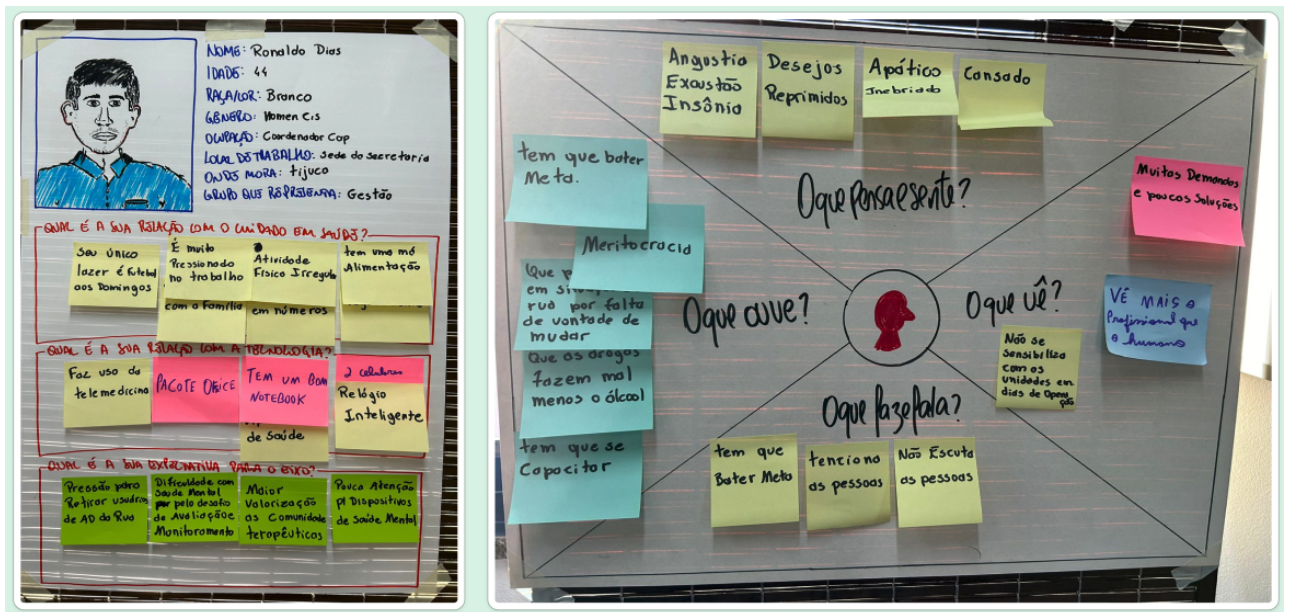 NOME: Ronaldo Dias
IDADE: 44
RAÇA/COR: Branco
GÊNERO: Homem Cis
OCUPAÇÃO: Coordenador Cap
LOCAL DE TRABALHO: Sede da Secretaria
ONDE MORA: tijuca
GRUPO QUE REPRESENTA: Gestão
QUAL É A SUA RELAÇÃO COM O CUIDADO EM SAÚDE?
Seu único
lazer é futebol
aos Domingos
É muito
Pressionado
no trabalho
com a Família
Atividade
Físico Irregula
em números
tem uma má
Alimentação
QUAL É A SUA RELAÇÃO COM A TECNOLOGIA?
Faz uso da
telemedicina
PACOTE OFFICE
TEM UM BOM
NOTEBOOK
de Saúde
2 celulares
Relógio
Inteligente
QUAL É A SUA EXPECTATIVA PARA O EIXO?
Pressão para
Retirar usuários
de AD da Rua
Dificuldade com
Saúde Mental
por pelo desafio
de Avaliação e
Monitoramento
Maior
Valorização
as Comunidade
terapêuticas
Pouca Atenção
p/ Dispositivos
de Saúde Mental
Angustia
Exaustão
Insônia
Desejos
Reprimidos
Apático
Inebriado
Cansado
O que pensa e sente?
tem que bater
Meta.
Meritocracia
Que
em
rua por falta
de vontade de
mudar
Que as drogas
fazem mal
menos o álcool
tem que se
Capacitar
O que ouve?
O que vê?
Muitas Demandas
e poucas Soluções
VÊ MAIS o
Profissional que
o humano
Não se
Sensibiliza
com as
unidades em
dias de Opera
ção
O que faz e fala?
tem que
Bater Meta
tenciona
as pessoas
Não Escuta
as pessoas